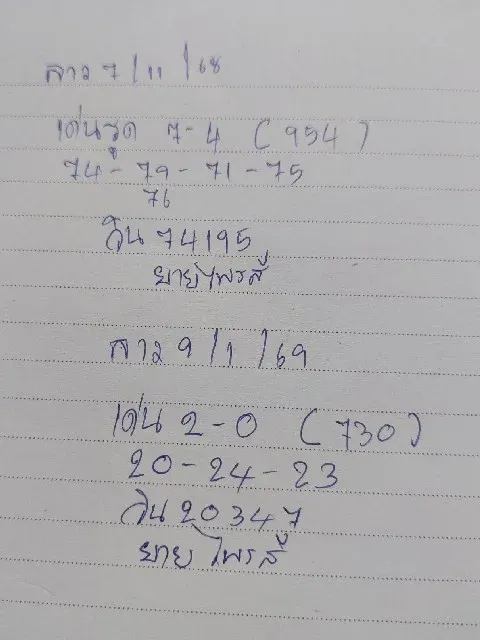 ลาว 7/11/68
เด่นรูด 7-4 (954)
74-79-71-75
76
วิน 74195
ยายไพรสี
ลาว 9/1/69
เด่น 2-0 (730)
20-24-23
วิน 20347
ยายไพรสี